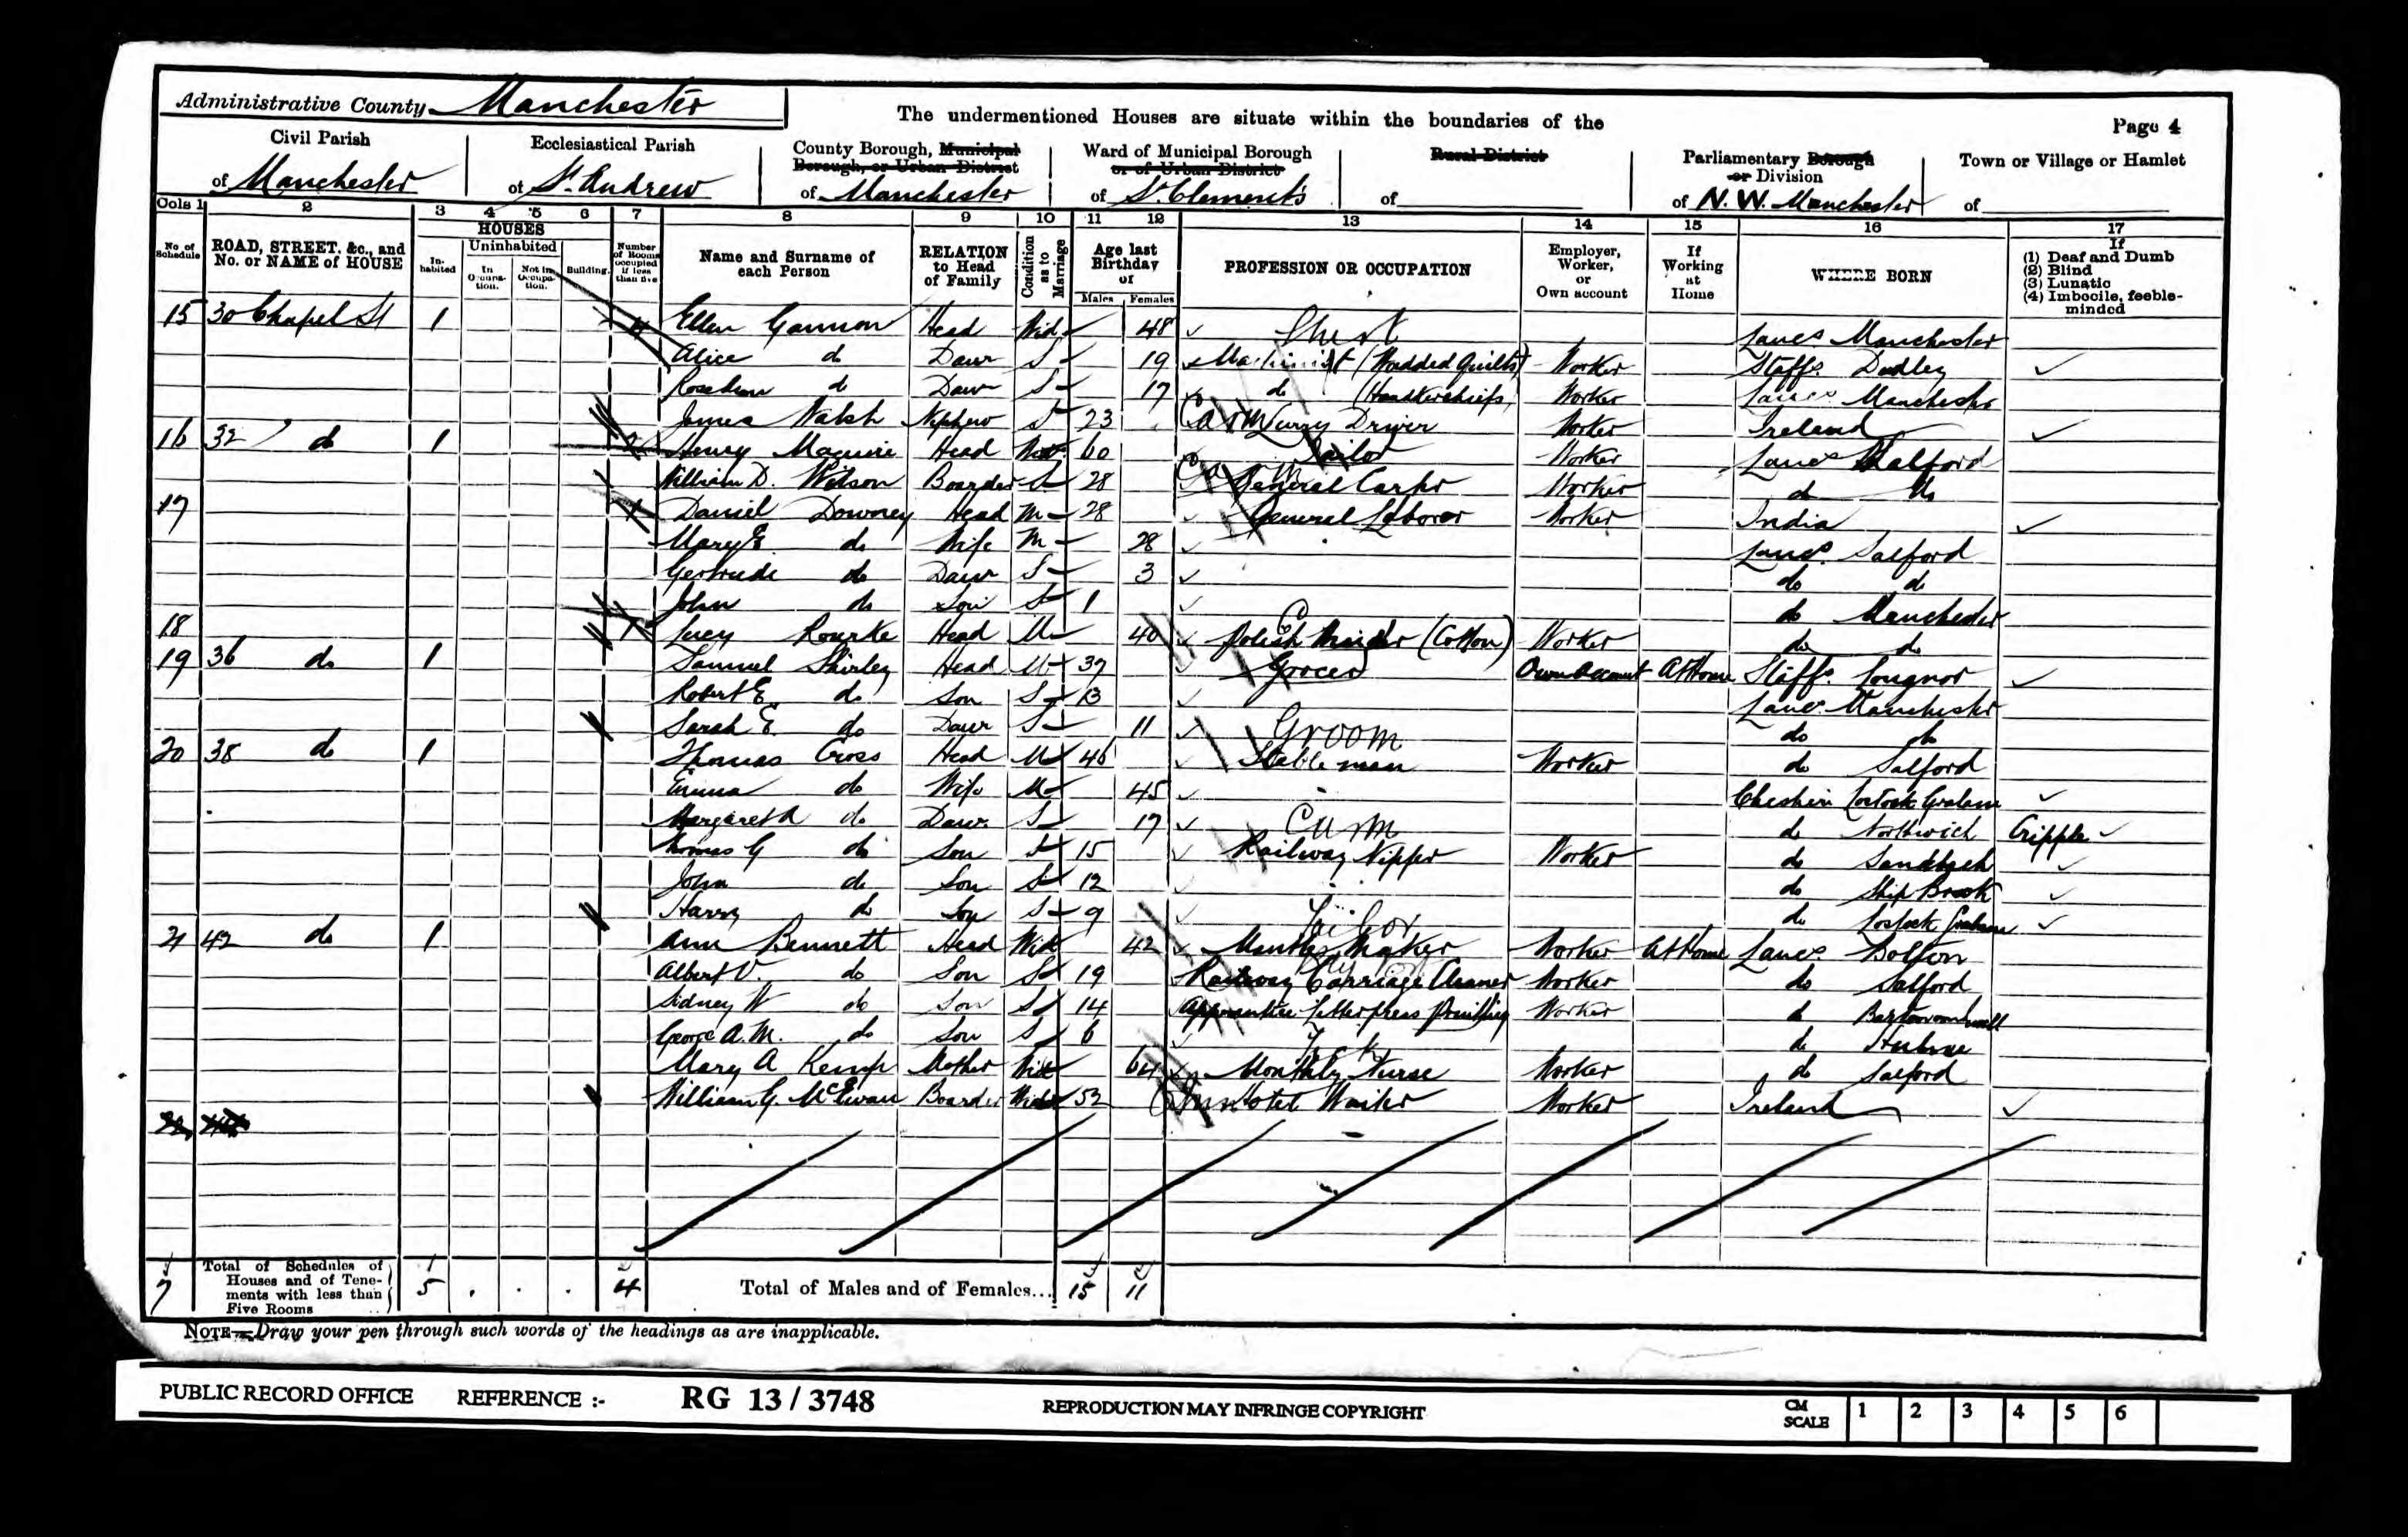 Administrative County Manchester
The undermentioned Houses are situate within the boundaries of the
Page 4
Civil Parish of Manchester
Ecclesiastical Parish of St. Andrew
County Borough, Municipal Borough, or Urban District of Manchester
Ward of Municipal Borough or of Urban District of St. Clement's
Rural District of
Parliamentary Borough or Division of N. W. Manchester
Town or Village or Hamlet of
Cols 1 2 3 4 5 6 7 8 9 10 11 12 13 14 15 16 17
No. of Schedule
ROAD, STREET, &c., and No. or NAME of HOUSE
HOUSES
In-habited
Uninhabited
In Occupa-tion.
Not in Occupa-tion.
Building.
Number of Rooms occupied if less than five
Name and Surname of each Person
RELATION to Head of Family
Condition as to Marriage
Age last Birthday of
Males Females
PROFESSION OR OCCUPATION
Employer, Worker, or Own account
If Working at Home
WHERE BORN
If (1) Deaf and Dumb (2) Blind (3) Lunatic (4) Imbecile, feeble-minded
15 30 Chapel St 1 4 Ellen Gannon Head Wid 48 Lancs Manchester
Alice do Daur S 19 Machinist (Wadded Quilts) Worker Staffs. Dudley
Rose Ann do Daur S 17 do (Handkerchiefs) Worker Lancs Manchester
James Walsh Nephew S 23 Lurry Driver Worker Ireland
16 32 do 1 2 Henry Maguire Head 60 Tailor Worker Lancs Salford
William D. Wilson Boarder S 28 General Carter Worker do do
17 1 Daniel Downey Head M 28 General Laborer Worker India
Mary E. do Wife M 28 Lancs. Salford
Gertrude do Daur S 3 do do
John do Son S 1 do Manchester
18 1 Lucy Rourke Head M 40 Polish Winder (Cotton) Worker do do
19 36 do 1 Samuel Shirley Head M 39 Grocer Own Account At Home Staffs. Longnor
Robert E. do Son S 13 Lancs. Manchester
Sarah E. do Daur S 11 do do
Groom
20 38 do 1 Thomas Cross Head M 46 Stableman Worker do Salford
Emma do Wife M 45 Cheshire Lostock Gralam
Margaret A do Daur. S 17 do Northwich Cripple
Carm
Thomas G do Son S 15 Railway Nipper Worker do Sandbach
John do Son S 12 do Ship Brook
Harry do Son S 9 do Lostock Gralam
Tailor
21 42 do 1 Ann Bennett Head Wid 42 Mantle Maker Worker At Home Lancs Bolton
Albert V. do Son S 19 Railway Carriage Cleaner Worker do Salford
Sidney W do Son S 14 Apprentice Letterpress Printing Worker do
George A. M. do Son S 6 do Hulme
Mary A Kemp Mother Wid 64 Monthly Nurse Worker do Salford
William G. McEwan Boarder Widr 52 Hotel Waiter Worker Ireland
7 Total of Schedules of Houses and of Tene-ments with less than Five Rooms 5 . . . 4 Total of Males and of Females... 15 11
NOTE—Draw your pen through such words of the headings as are inapplicable.
PUBLIC RECORD OFFICE REFERENCE :- RG 13 / 3748 REPRODUCTION MAY INFRINGE COPYRIGHT CM SCALE 1 2 3 4 5 6